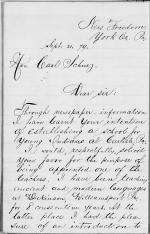 New Freedom
York Co. Pa.
Sept. 21, 79.
Hon Carl Schurz
Dear sir:
Through newspaper information
I have learnt your intention
of establishing a school for
Young Indians at Carlisle, Pa.
I would, respectfully solicit
your favor for the purpose of
being appointed one of the
teachers. I have been teaching
ancient and modern languages
at Dickinson, Williamsport, Pa.
for 7 consecutive years. At the
latter place I had the pleas
ure of an introduction to